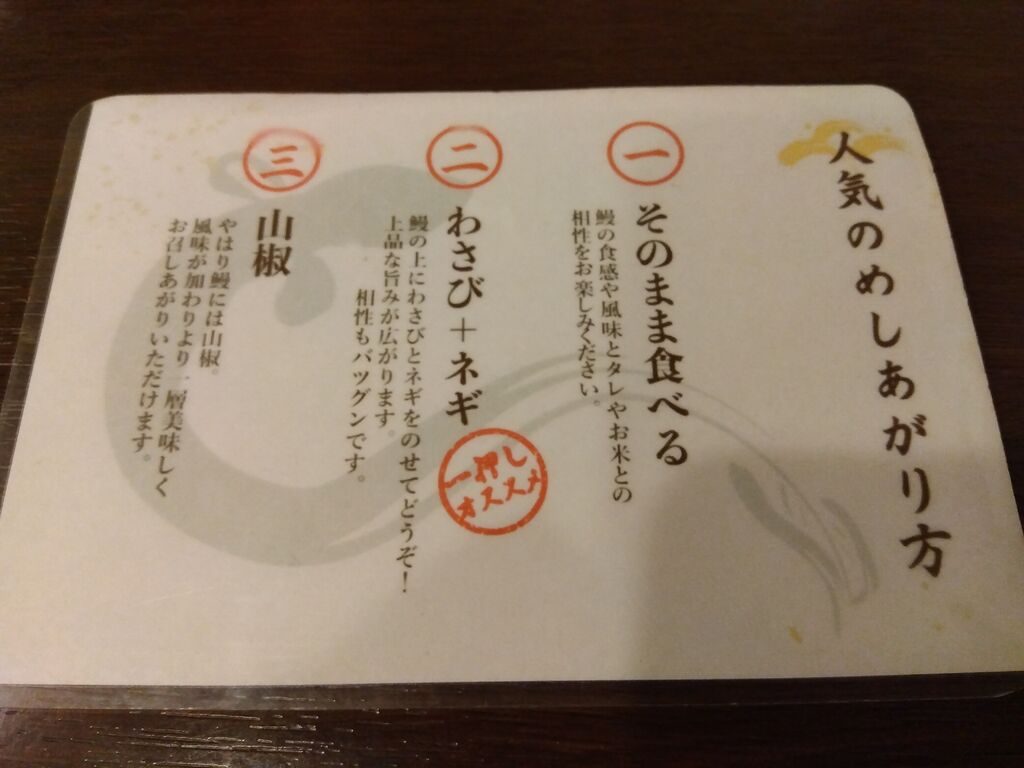 人気のめしあがり方
一
そのまま食べる
鰻の食感や風味とタレやお米との
相性をお楽しみください。
二
わさび+ネギ
一押し
オススメ
鰻の上にわさびとネギをのせてどうぞ!
上品な旨みが広がります。
相性もバツグンです。
三
山椒
やはり鰻には山椒。
風味が加わりより一層美味しく
お召しあがりいただけます。